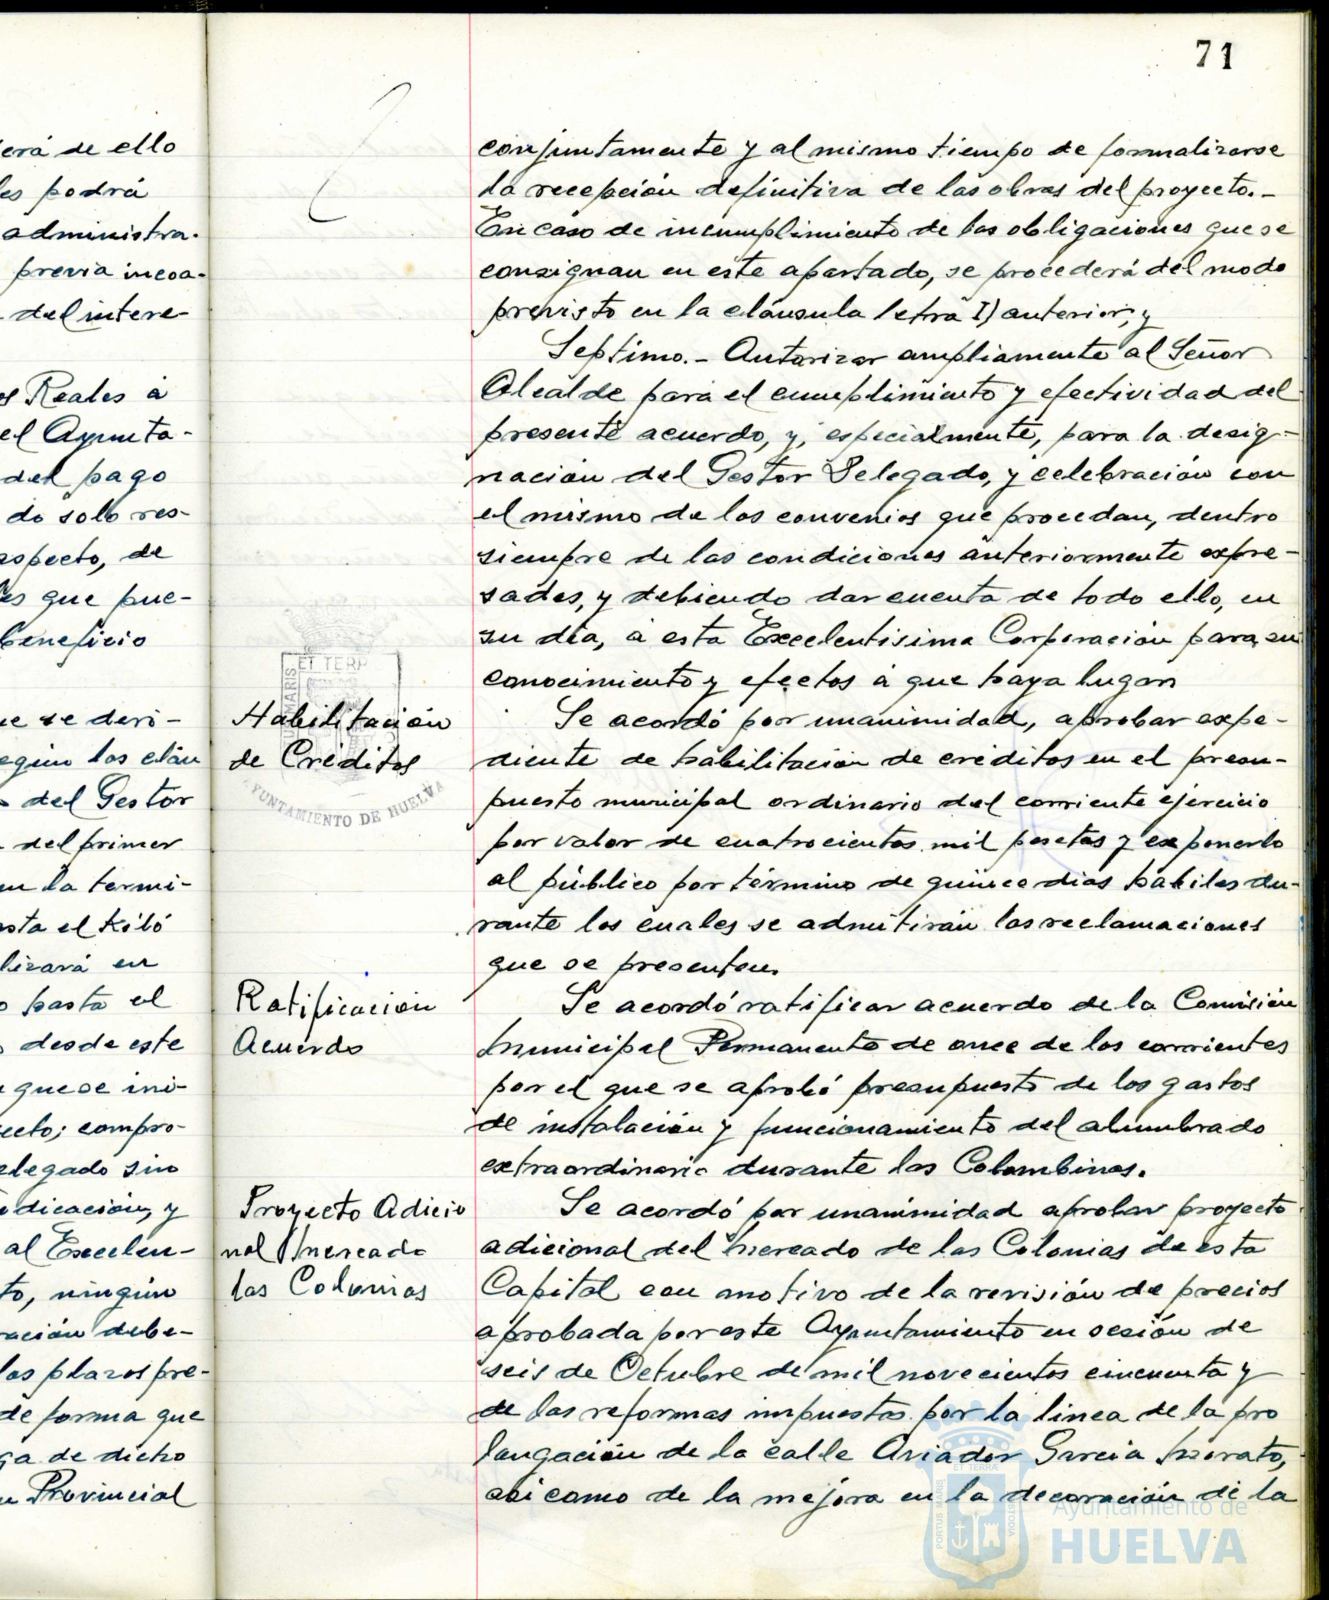 71
erá de ello
es podrá
administra-
previa incoa-
del intere-
Reales á
el Ayunta-
del pago
do solo res-
aspecto, de
es que pue-
beneficio
ue se deri-
egún las cláu
del Gestor
del primer
en la termi-
sta el kiló
lizará en
o hasta el
desde este
que se ini-
ecto; compro-
elegado sin
dicación, y
al Excelen-
to, ningún
ración debe-
los plazos pre-
de forma que
ga de dicho
Provincial
conjuntamente y al mismo tiempo de formalizarse
la recepción definitiva de las obras del proyecto.-
En caso de incumplimiento de las obligaciones que se
consignan en este apartado, se procederá del modo
previsto en la cláusula letra I) anterior; y
Septimo.- Autorizar ampliamente al Señor
Alcalde para el cumplimiento y efectividad del
presente acuerdo, y, especialmente, para la desig-
nación del Gestor Delegado, y celebración con
el mismo de los convenios que procedan, dentro
siempre de las condiciones anteriormente expre-
sadas, y debiendo dar cuenta de todo ello, en
su día, á esta Excelentisima Corporación para su
conocimiento y efectos á que haya lugar.
Habilitación
de Créditos
Se acordó por unanimidad, aprobar expe-
diente de habilitación de créditos en el presu-
puesto municipal ordinario del corriente ejercicio
por valor de cuatrocientas mil pesetas y exponerlo
al público por término de quince dias habiles du-
rante los cuales se admitirán las reclamaciones
que se presenten.
Ratificación
Acuerdo
Se acordó ratificar acuerdo de la Comisión
Municipal Permanente de once de los corrientes
por el que se aprobó presupuesto de los gastos
de instalación y funcionamiento del alumbrado
extraordinario durante las Colombinas.
Proyecto Adicio
nal Mercado
las Colonias
Se acordó por unanimidad aprobar proyecto
adicional del Mercado de las Colonias de esta
Capital con motivo de la revisión de precios
aprobada por este Ayuntamiento en sesión de
seis de Octubre de mil novecientos cincuenta y
de las reformas impuestas por la linea de la pro
longación de la calle Aviador Garcia Morato,
asi como de la mejora en la decoración de la
ET TERR
MARIS
AYUNTAMIENTO DE HUELVA
Ayuntamiento de
HUELVA